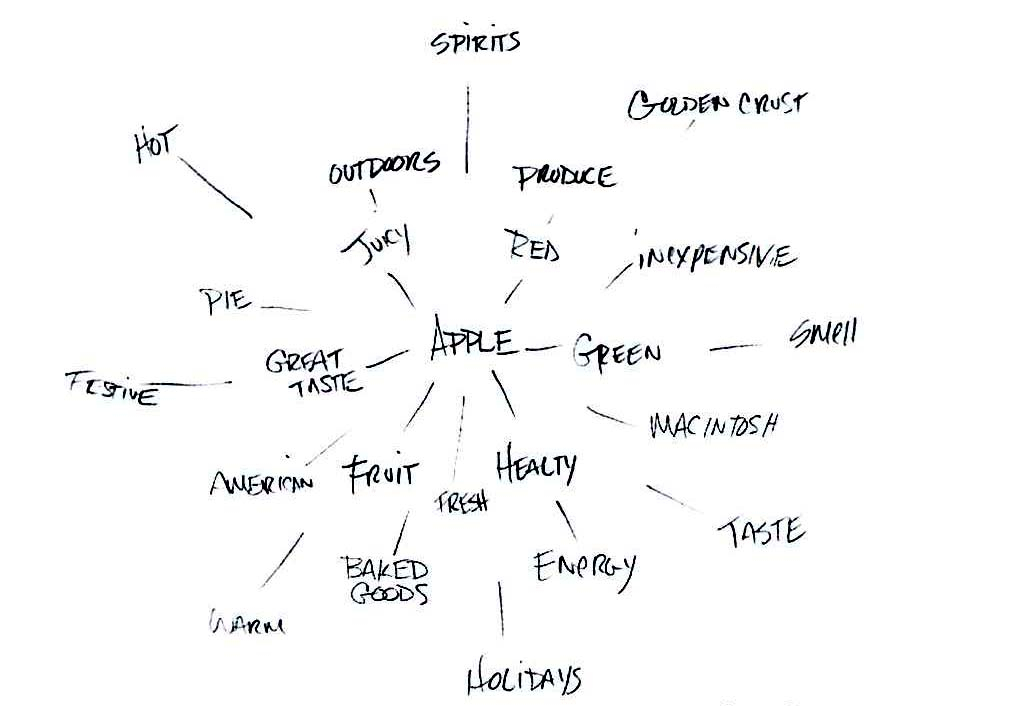 SPIRITS
GOLDEN CRUST
HOT
OUTDOORS
PRODUCE
JUICY
RED
INEXPENSIVE
PIE
APPLE
GREEN
SMEll
GREAT
TASTE
FESTIVE
MACINTOSH
AMERICAN
FRUIT
HEALTY
FRESH
TASTE
BAKED
GOODS
ENERGY
WARM
HOLIDAYS